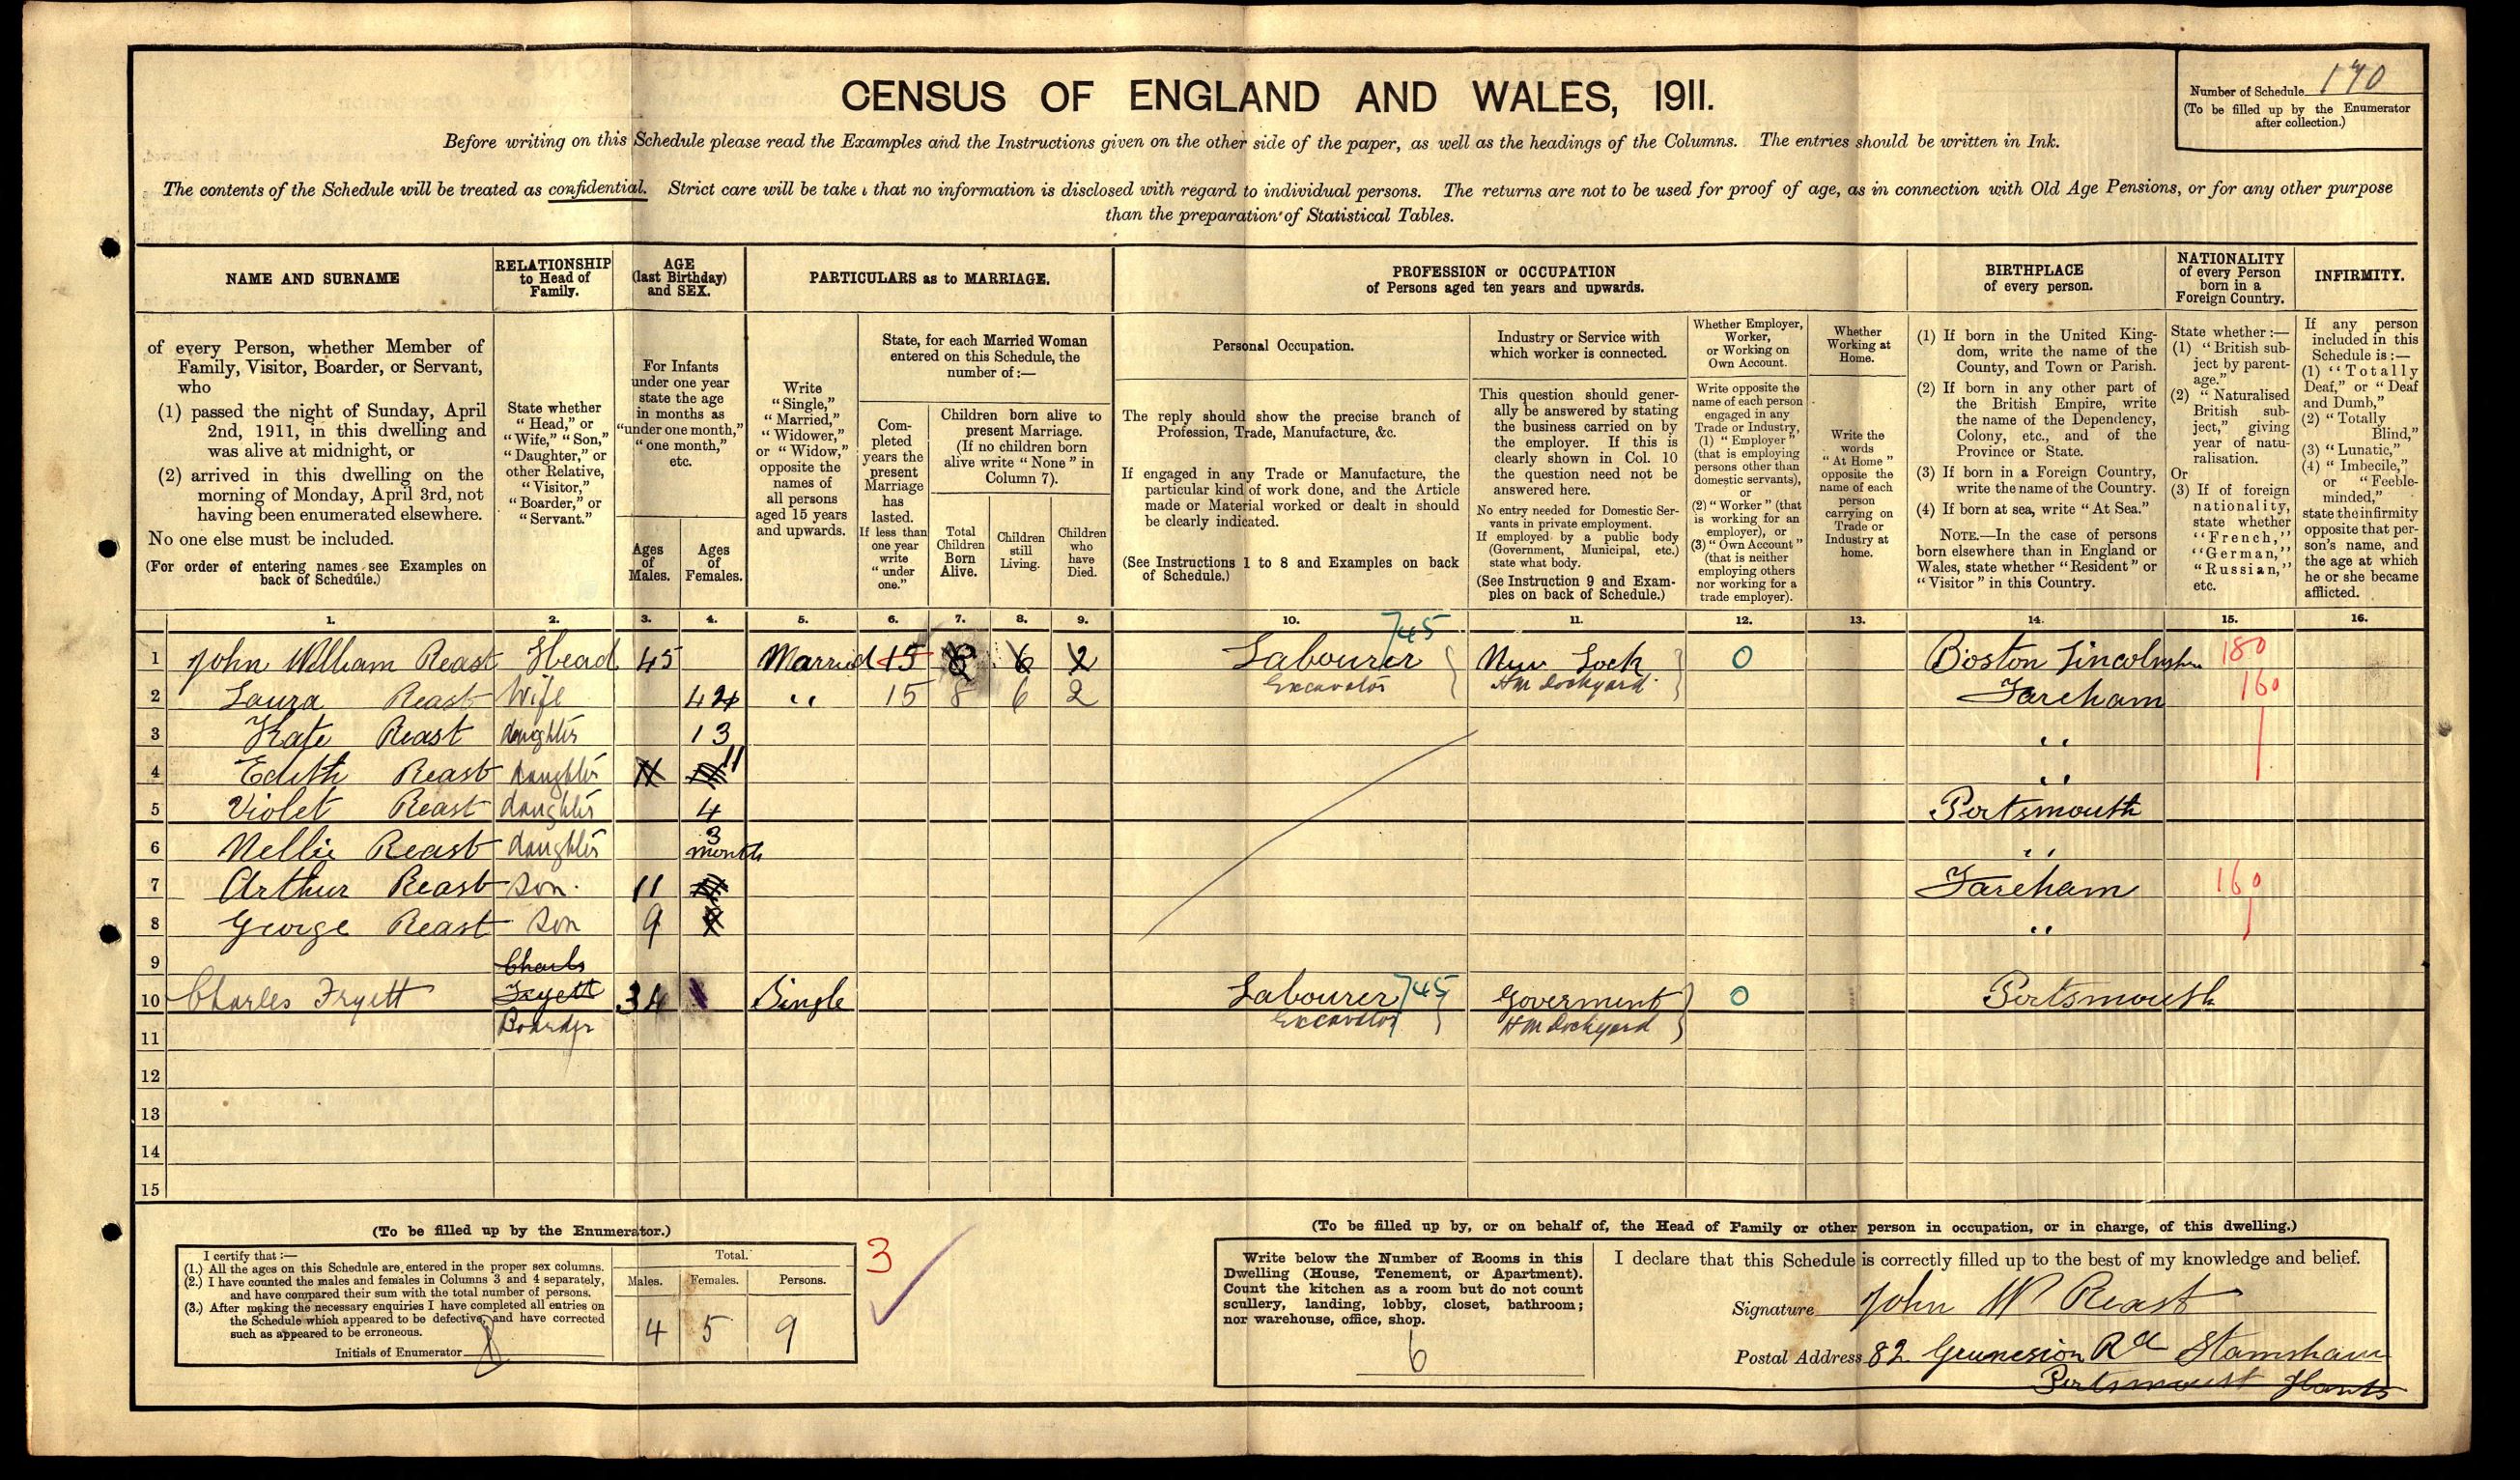 CENSUS OF ENGLAND AND WALES, 1911.
Number of Schedule 170
(To be filled up by the Enumerator
after collection.)
Before writing on this Schedule please read the Examples and the Instructions given on the other side of the paper, as well as the headings of the Columns. The entries should be written in Ink.
The contents of the Schedule will be treated as confidential. Strict care will be take that no information is disclosed with regard to individual persons. The returns are not to be used for proof of age, as in connection with Old Age Pensions, or for any other purpose
than the preparation of Statistical Tables.
NAME AND SURNAME
of every Person, whether Member of
Family, Visitor, Boarder, or Servant,
who
(1) passed the night of Sunday, April
2nd, 1911, in this dwelling and
was alive at midnight, or
(2) arrived in this dwelling on the
morning of Monday, April 3rd, not
having been enumerated elsewhere.
No one else must be included.
(For order of entering names see Examples on
back of Schedule.)
RELATIONSHIP
to Head of
Family.
State whether
"Head," or
"Wife," "Son,"
"Daughter," or
other Relative,
"Visitor,"
"Boarder," or
"Servant."
AGE
(last Birthday)
and SEX.
For Infants
under one year
state the age
in months as
"under one month,"
"one month,"
etc.
Ages
of
Males.
Ages
of
Females.
PARTICULARS as to MARRIAGE.
Write
"Single,"
"Married,"
"Widower,"
or "Widow,"
opposite the
names of
all persons
aged 15 years
and upwards.
State, for each Married Woman
entered on this Schedule, the
number of:—
Com-
pleted
years the
present
Marriage
has
lasted.
If less than
one year
write
"under
one."
Children born alive to
present Marriage.
(If no children born
alive write "None" in
Column 7).
Total
Children
Born
Alive.
Children
still
Living.
Children
who
have
Died.
PROFESSION or OCCUPATION
of Persons aged ten years and upwards.
Personal Occupation.
The reply should show the precise branch of
Profession, Trade, Manufacture, &c.
If engaged in any Trade or Manufacture, the
particular kind of work done, and the Article
made or Material worked or dealt in should
be clearly indicated.
(See Instructions 1 to 8 and Examples on back
of Schedule.)
Industry or Service with
which worker is connected.
This question should gener-
ally be answered by stating
the business carried on by
the employer. If this is
clearly shown in Col. 10
the question need not be
answered here.
No entry needed for Domestic Ser-
vants in private employment.
If employed by a public body
(Government, Municipal, etc.)
state what body.
(See Instruction 9 and Exam-
ples on back of Schedule.)
Whether Employer,
Worker,
or Working on
Own Account.
Write opposite the
name of each person
engaged in any
Trade or Industry,
(1) "Employer"
(that is employing
persons other than
domestic servants),
or
(2) "Worker" (that
is working for an
employer), or
(3) "Own Account"
(that is neither
employing others
nor working for a
trade employer).
Whether
Working at
Home.
Write the
words
"At Home"
opposite the
name of each
person
carrying on
Trade or
Industry at
home.
BIRTHPLACE
of every person.
(1) If born in the United King-
dom, write the name of the
County, and Town or Parish.
(2) If born in any other part of
the British Empire, write
the name of the Dependency,
Colony, etc., and of the
Province or State.
(3) If born in a Foreign Country,
write the name of the Country.
(4) If born at sea, write "At Sea."
NOTE.—In the case of persons
born elsewhere than in England or
Wales, state whether "Resident" or
"Visitor" in this Country.
NATIONALITY
of every Person
born in a
Foreign Country.
State whether:—
(1) "British sub-
ject by parent-
age."
(2) "Naturalised
British sub-
ject," giving
year of natu-
ralisation.
Or
(3) If of foreign
nationality,
state whether
"French,"
"German,"
"Russian,"
etc.
INFIRMITY.
If any person
included in this
Schedule is:—
(1) "Totally
Deaf," or "Deaf
and Dumb,"
(2) "Totally
Blind,"
(3) "Lunatic,"
(4) "Imbecile,"
or "Feeble-
minded,"
state the infirmity
opposite that per-
son's name, and
the age at which
he or she became
afflicted.
1. 2. 3. 4. 5. 6. 7. 8. 9. 10. 11. 12. 13. 14. 15. 16.
745
1 John William Reast Head 45 Married 15 8 6 2 Labourer New Lock 0 Boston Lincolnshire 180
Excavator HM Dockyard
2 Laura Reast Wife 42 " 15 8 6 2 Fareham 160
3 Kate Reast daughter 13 "
4 Edith Reast daughter 11 "
5 Violet Reast daughter 4 Portsmouth
6 Nellie Reast daughter 3 month "
7 Arthur Reast Son. 11 Fareham 160
8 George Reast Son 9 "
9 Charls
10 Charles Fryett Fryett 34 Single Labourer 745 Goverment 0 Portsmouth
Boarder Excavator HM Dockyard
11
12
13
14
15
(To be filled up by the Enumerator.)
I certify that:—
(1.) All the ages on this Schedule are entered in the proper sex columns.
(2.) I have counted the males and females in Columns 3 and 4 separately,
and have compared their sum with the total number of persons.
(3.) After making the necessary enquiries I have completed all entries on
the Schedule which appeared to be defective, and have corrected
such as appeared to be erroneous.
Initials of Enumerator
Total.
Males. Females. Persons.
4 5 9
3
(To be filled up by, or on behalf of, the Head of Family or other person in occupation, or in charge, of this dwelling.)
Write below the Number of Rooms in this
Dwelling (House, Tenement, or Apartment).
Count the kitchen as a room but do not count
scullery, landing, lobby, closet, bathroom;
nor warehouse, office, shop.
6
I declare that this Schedule is correctly filled up to the best of my knowledge and belief.
Signature John W Reast
Postal Address 82 Rd Stamshaw
Portsmouth Hants